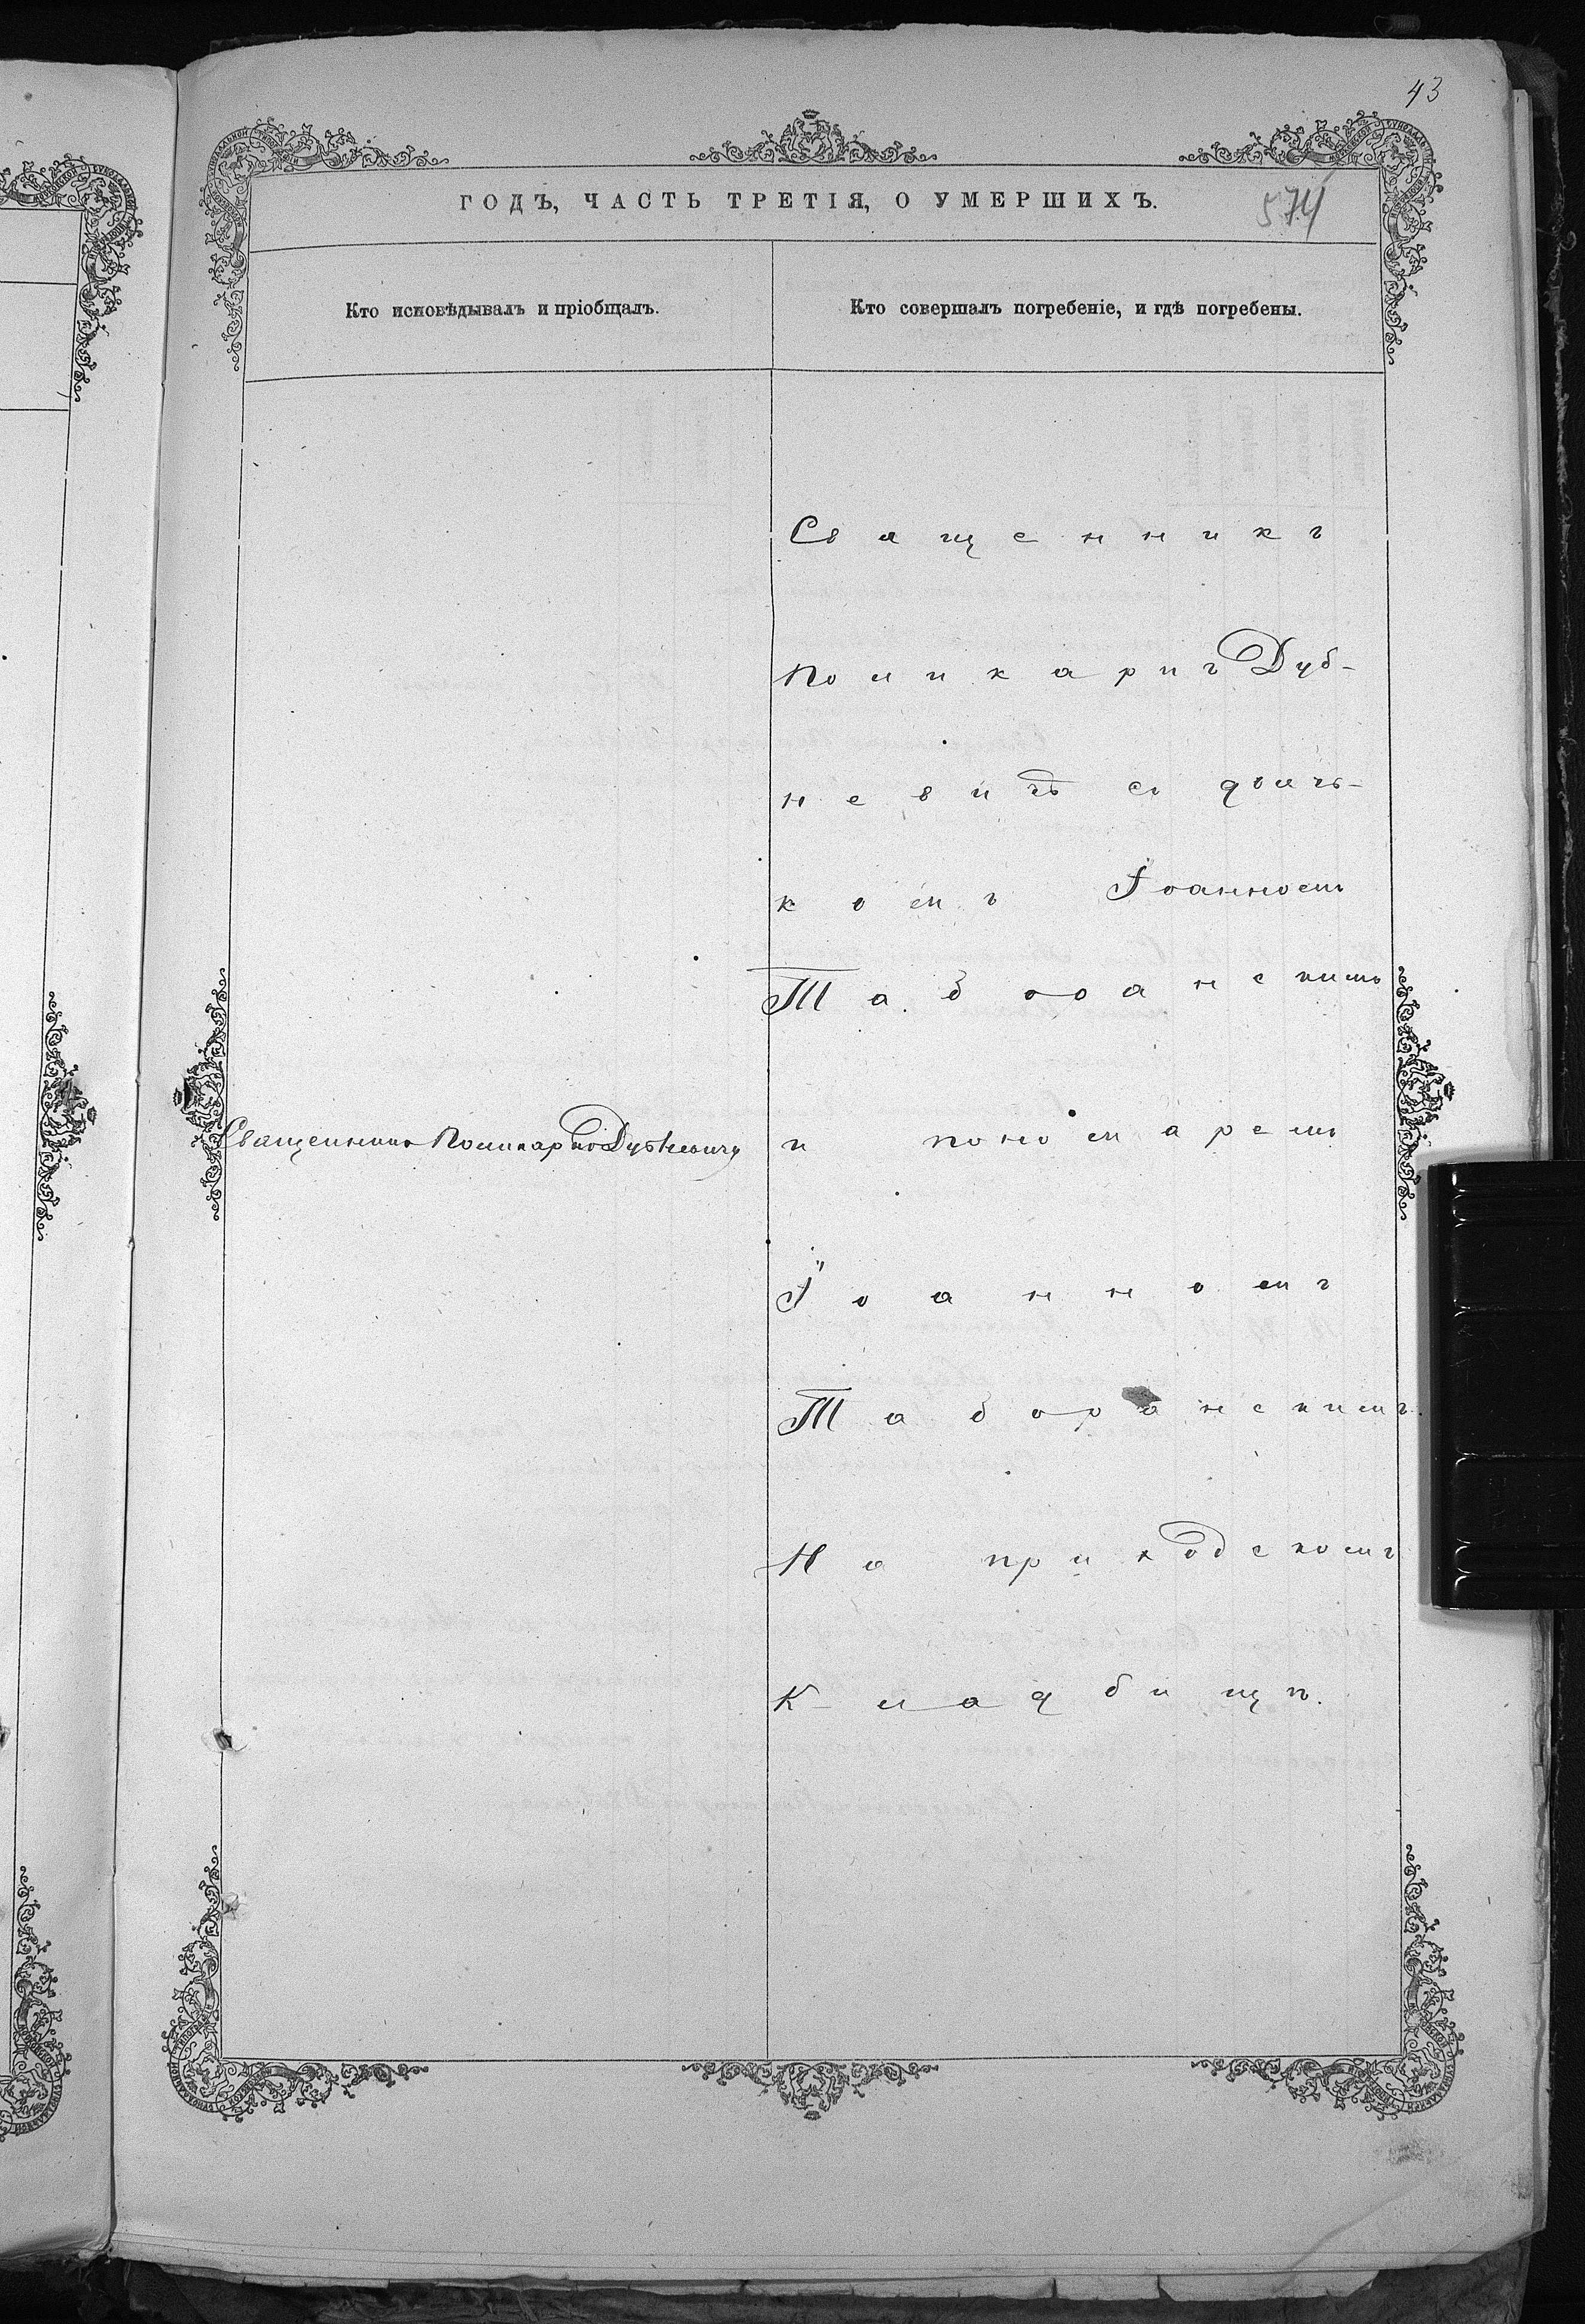 43
ГОДЪ, ЧАСТЬ ТРЕТІЯ, О УМЕРШИХЪ.
574
Кто исповѣдывалъ и пріобщалъ.
Кто совершалъ погребеніе, и гдѣ погребены.
Священникъ
Поликарпъ Дуб-
невичъ съ дьяч-
комъ Іоанномъ
Таборанскимъ
Священникъ Поликарпъ Дубневичъ
и пономаремъ
Іоанномъ
Таборанскимъ.
На приходскомъ
Кладбищѣ.